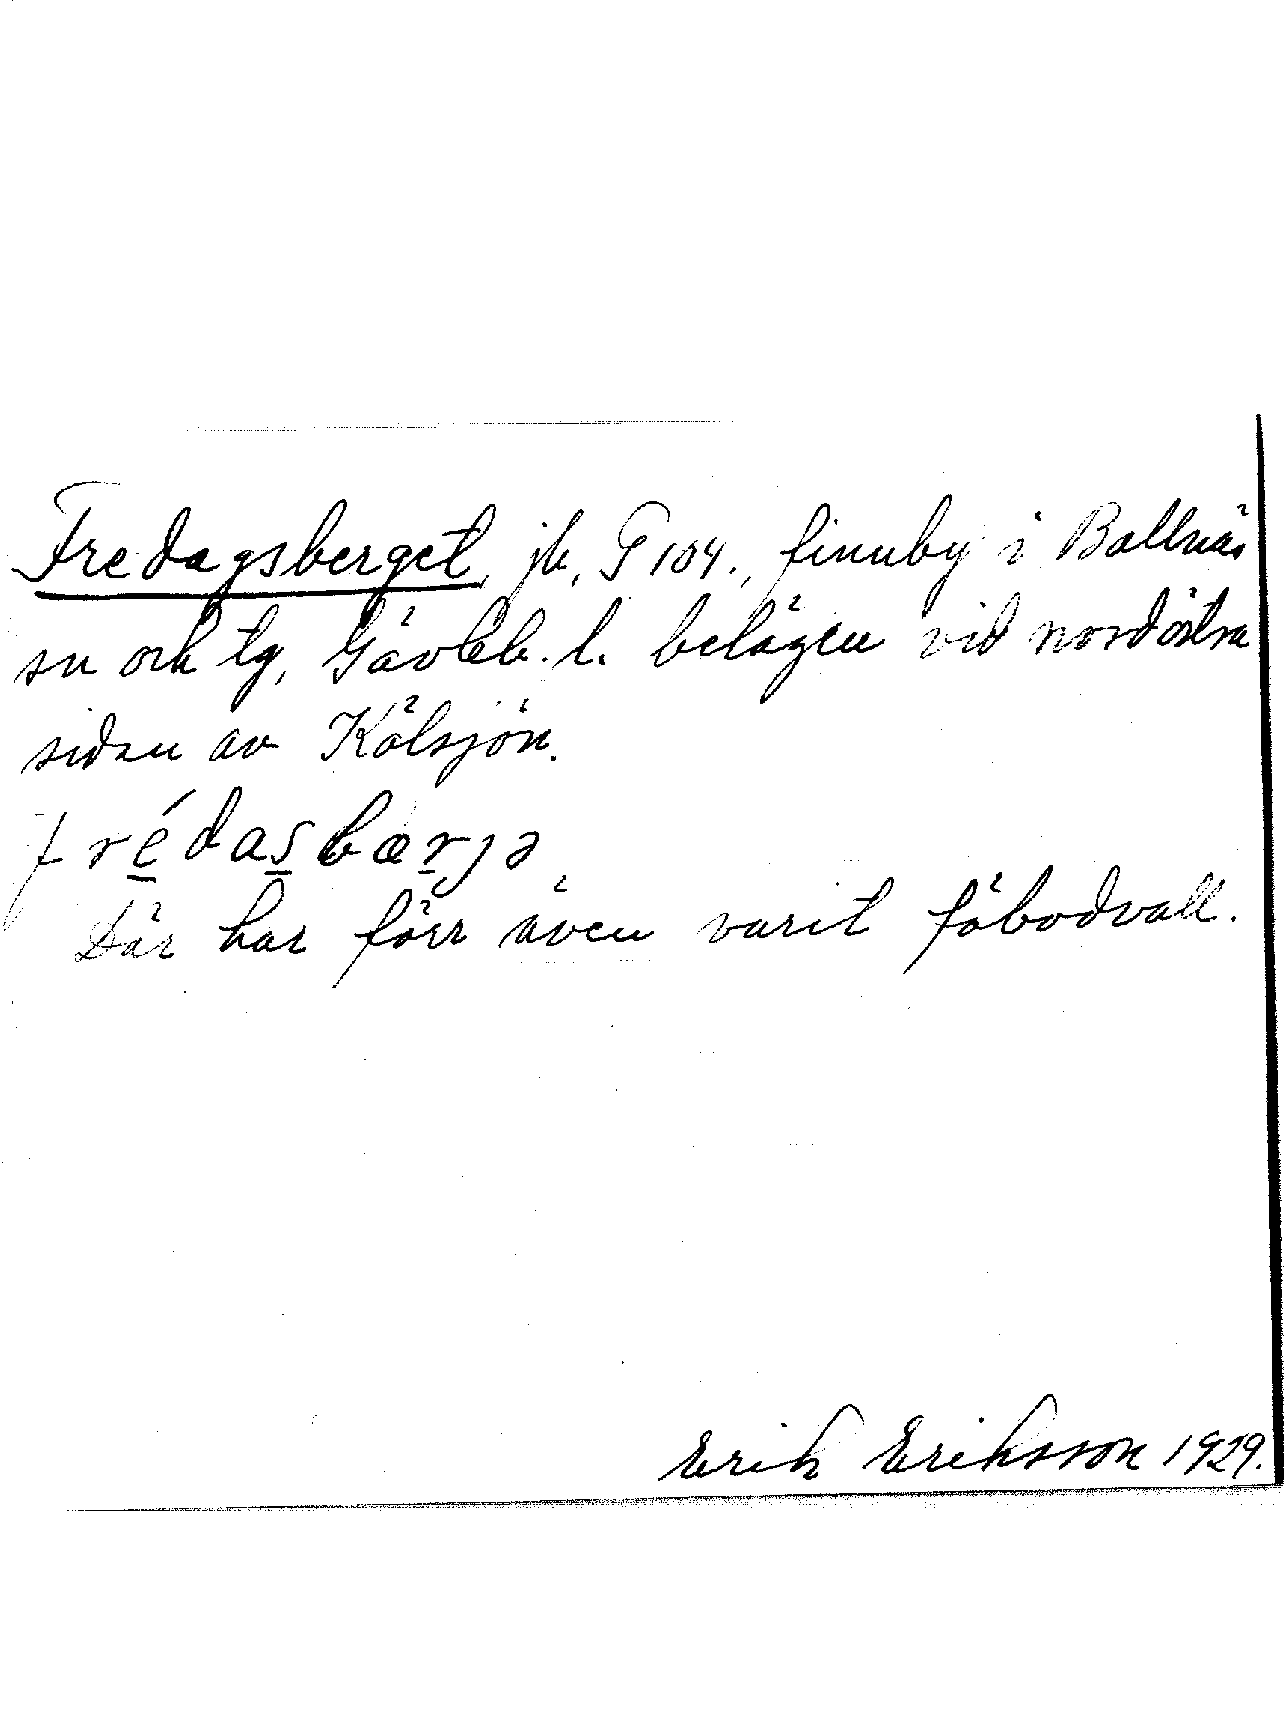 Fredagsberget, jb, G 104., finnby i Bollnäs
sn och tg, Gävleb. l. belägen vid nordöstra
sidan av Kölsjön.
frédasbærjə
Där har förr även varit fäbodvall.
Erik Eriksson 1929.